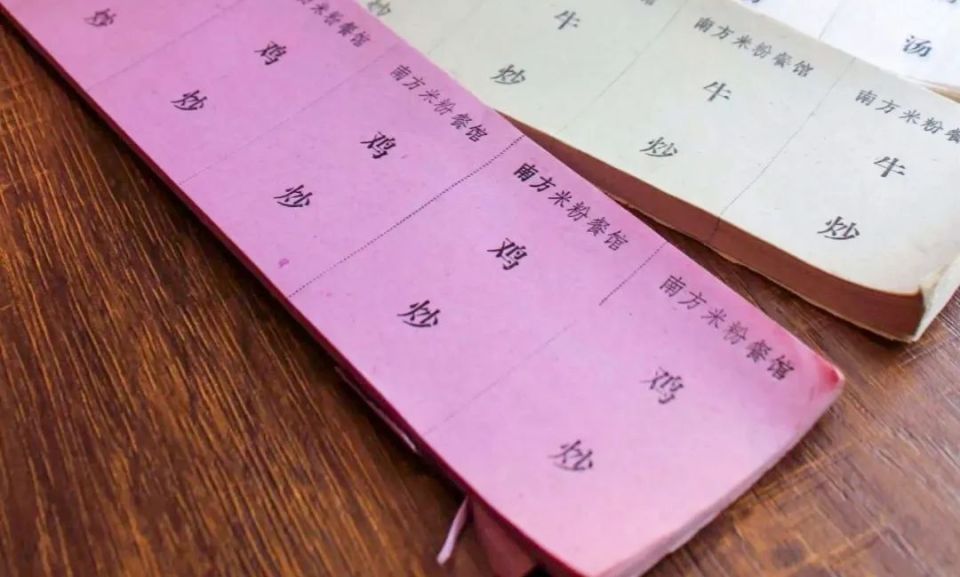 炒
米粉餐馆
鸡
炒
南方米粉餐馆
鸡
炒
南方米粉餐馆
鸡
炒
南方米粉餐馆
鸡
炒
牛
炒
南方米粉餐馆
牛
炒
南方米粉餐
牛
炒
汤